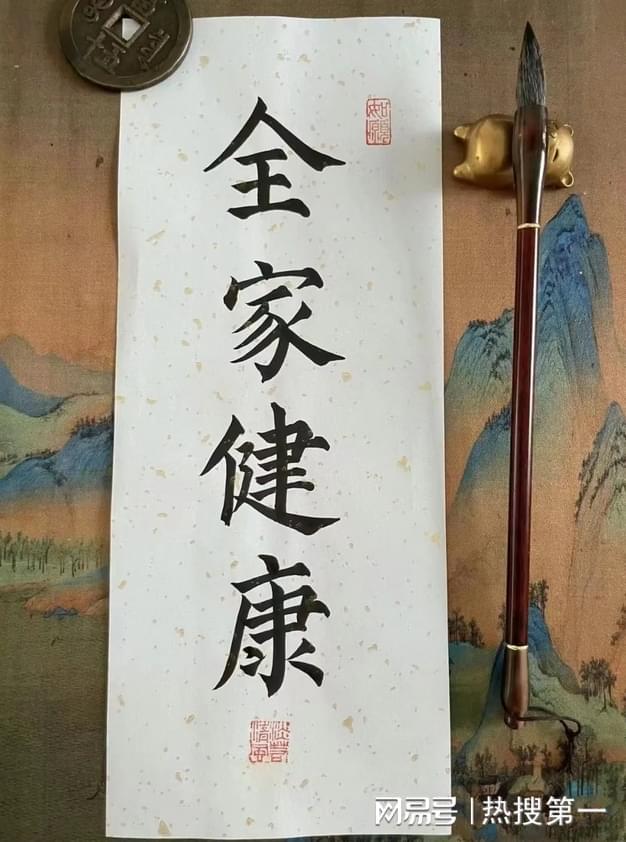 全家健康
如願
网易号 | 热搜第一